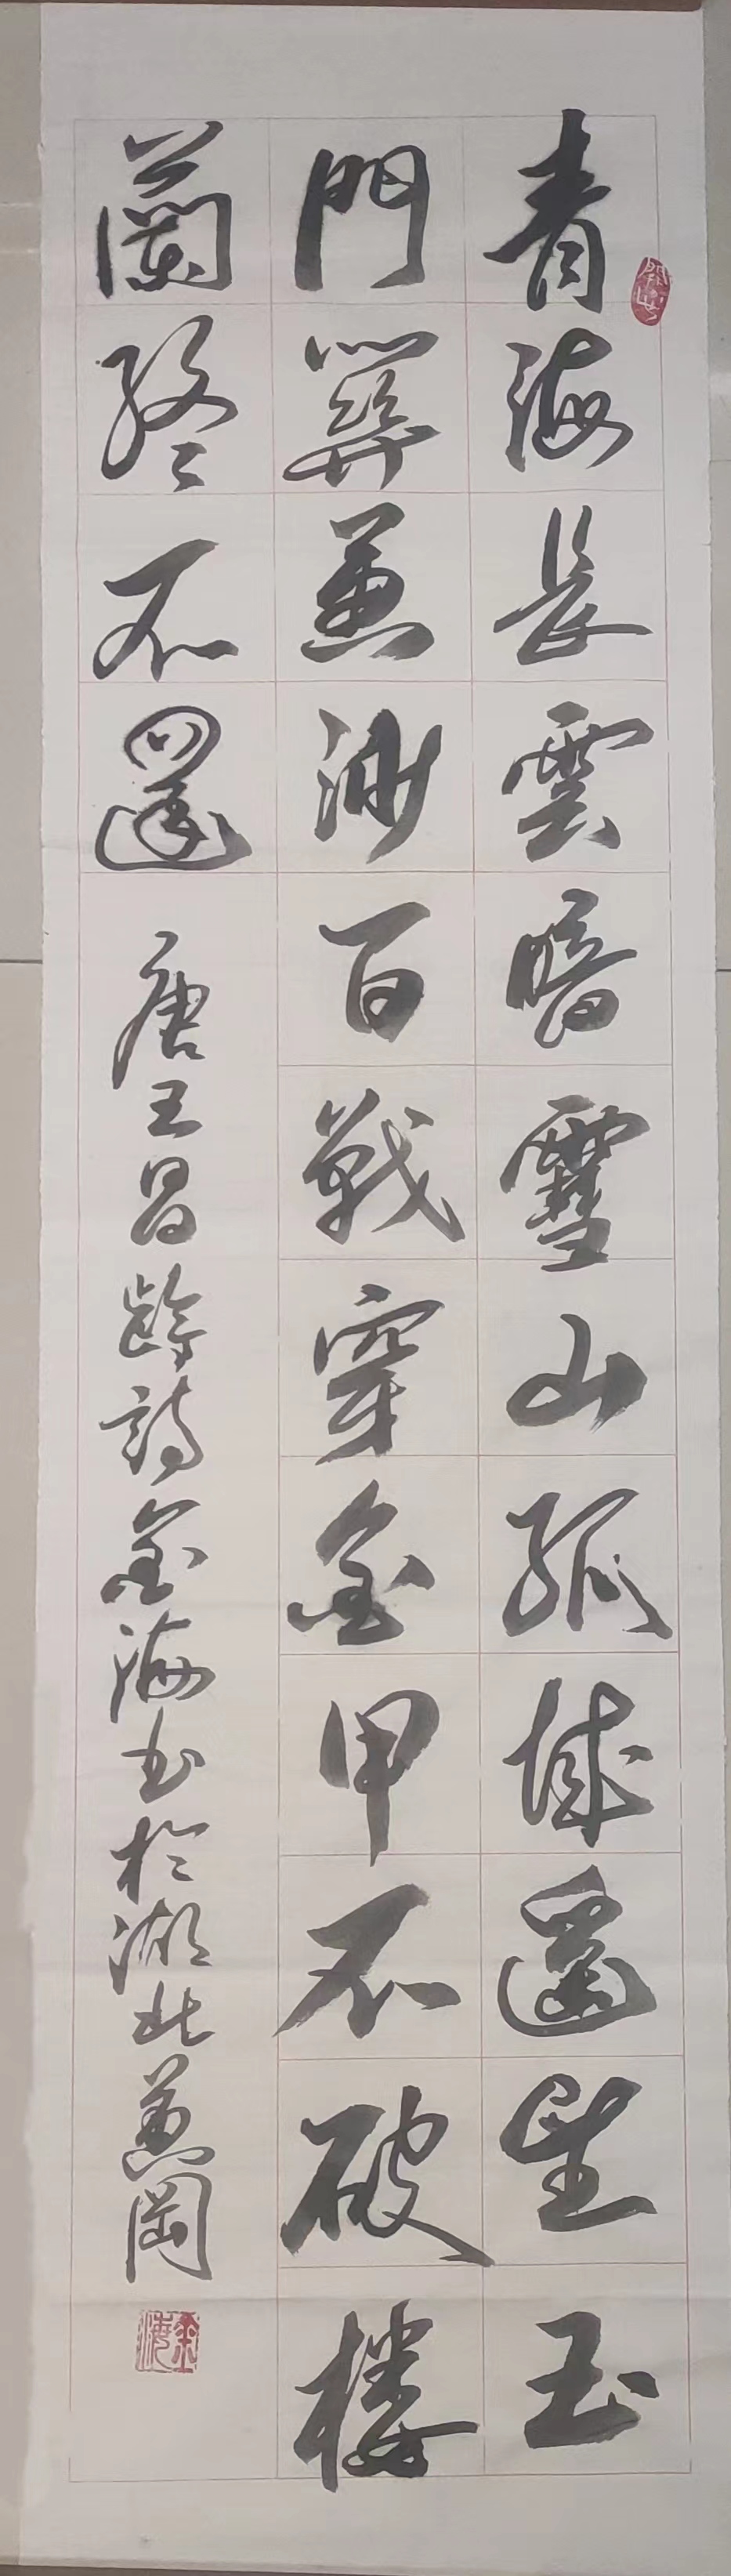 青海長雲暗雪山孤城遙望玉
門關黄沙百戰穿金甲不破樓
蘭終不還
唐王昌齡詩金海书於湖北黄岡
金海